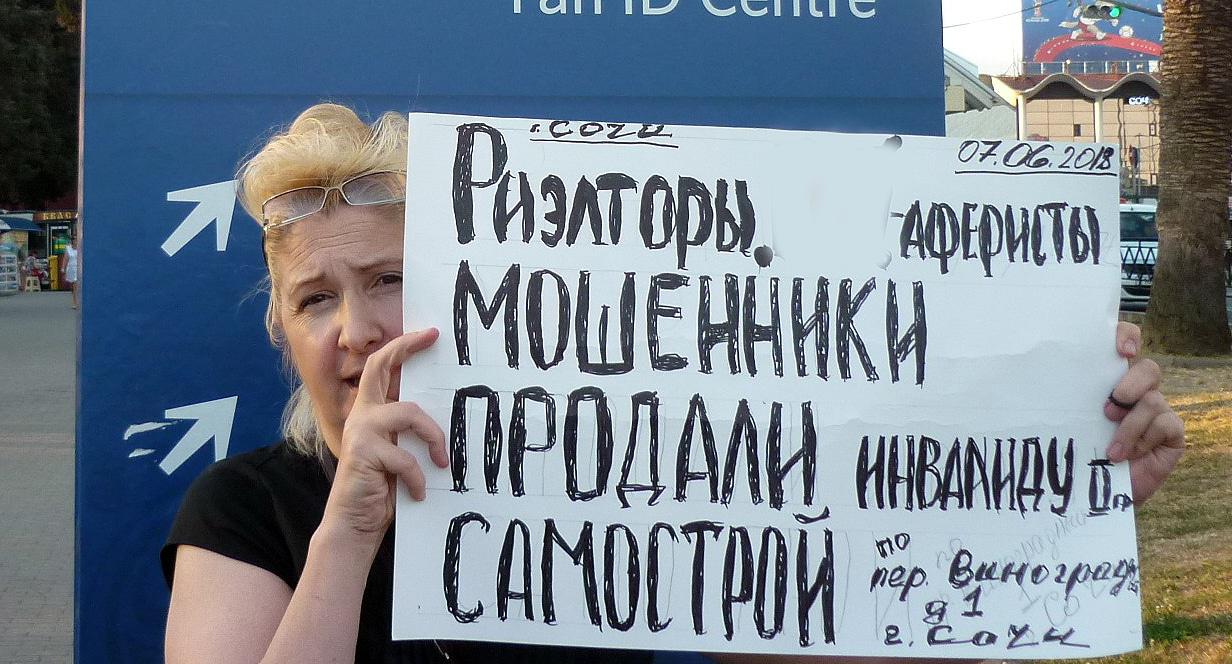 Fan ID Centre
СОЧ
г. Сочи
07.06.2018
Риэлторы -АФЕРИСТЫ
МОШЕННИКИ
ПРОДАЛИ ИНВАЛИДУ II гр
САМОСТРОЙ по
пер. Виноград
д 1
г. Сочи